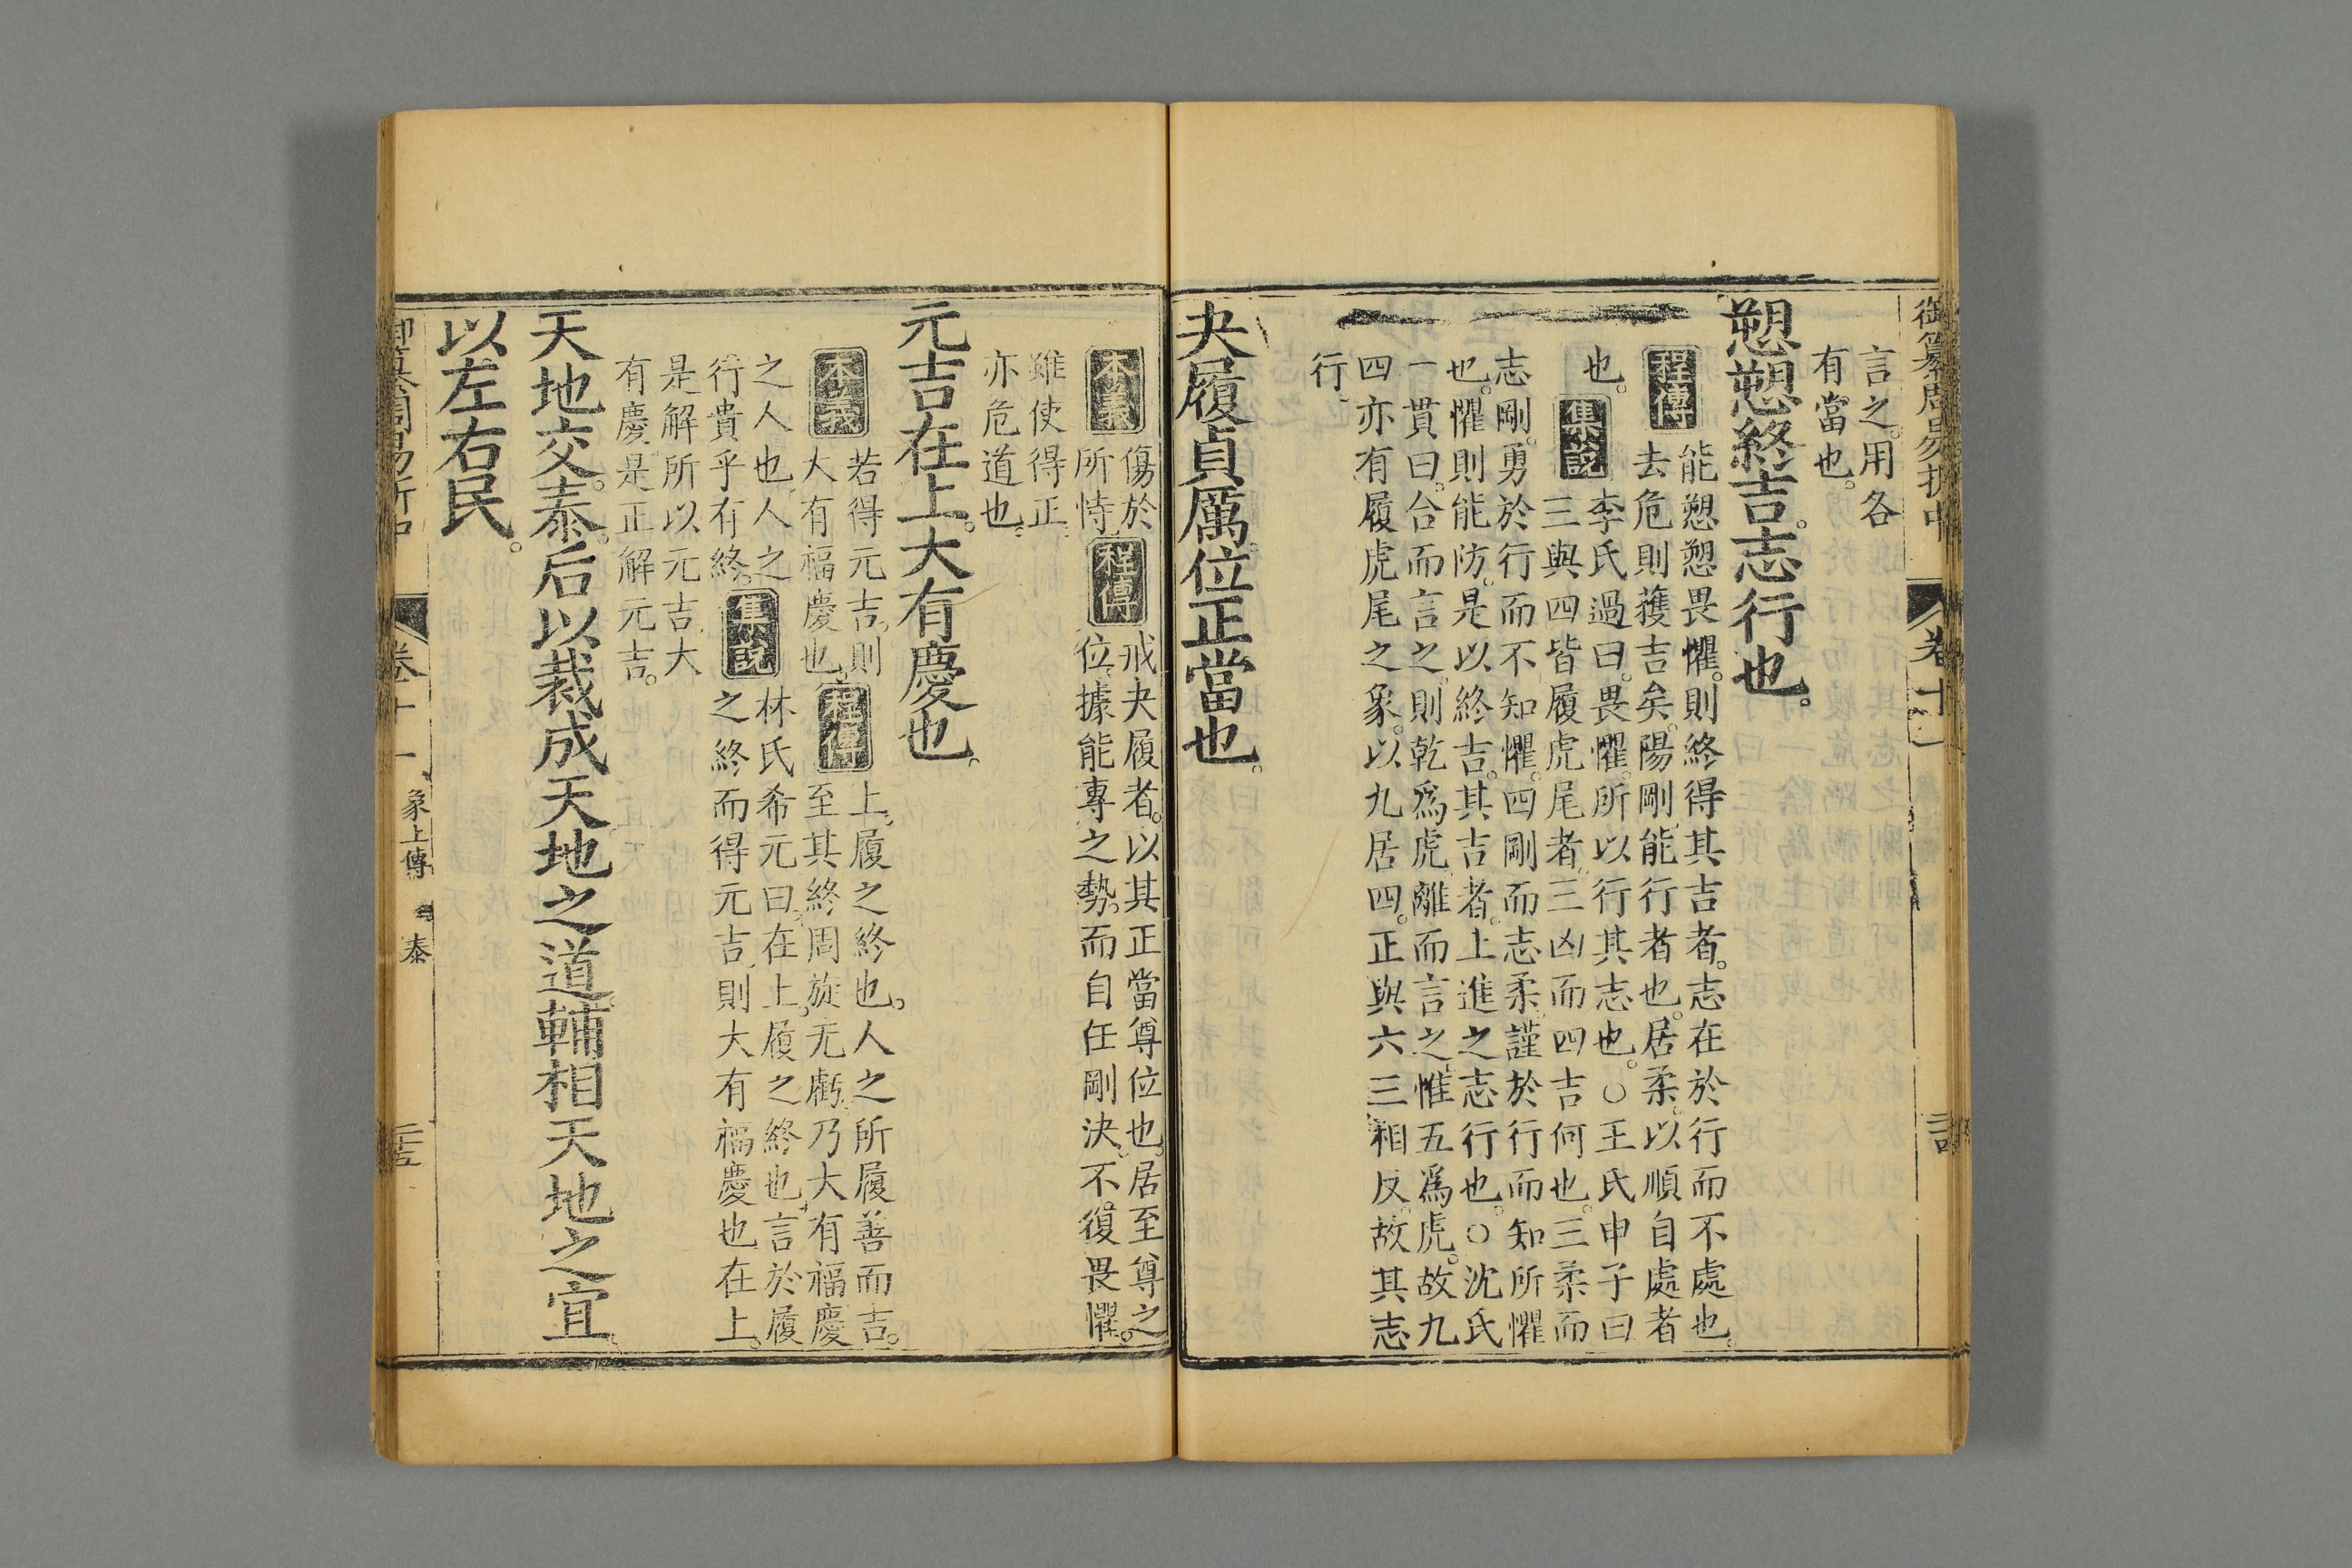 御纂周易折中 卷十一
言之用各
有當也。
愬愬終吉。志行也。
程傳 能愬愬畏懼。則終得其吉者。志在於行而不處也。
去危則獲吉矣。陽剛。能行者也。居柔。以順自處者
也。 集說 李氏過曰。畏懼。所以行其志也。○王氏申子曰
三與四皆履虎尾者。三凶而四吉何也。三柔而
志剛。勇於行而不知懼。四剛而志柔。謹於行而知所懼
也。懼則能防。是以終吉。其吉者。上進之志行也。○沈氏
一貫曰。合而言之。則乾爲虎。離而言之。惟五爲虎。故九
四亦有履虎尾之象。以九居四。正與六三相反。故其志
行。
夬履貞厲。位正當也。
本義 傷於
所恃 程傳 戒夬履者。以其正當尊位也。居至尊之
位。據能專之勢。而自任剛決。不復畏懼。
雖使得正。
亦危道也。
元吉在上。大有慶也。
本義 若得元吉。則
大有福慶也。 程傳 上。履之終也。人之所履善而吉。
至其終周旋无虧。乃大有福慶
之人也。人之
行貴乎有終。 集說 林氏希元曰。在上。履之終也。言於履
之終而得元吉。則大有福慶也。在上。
是解所以元吉。大
有慶。是正解元吉。
天地交。泰。后以裁成天地之道。輔相天地之宜。
以左右民。
卷十一 象上傳 泰